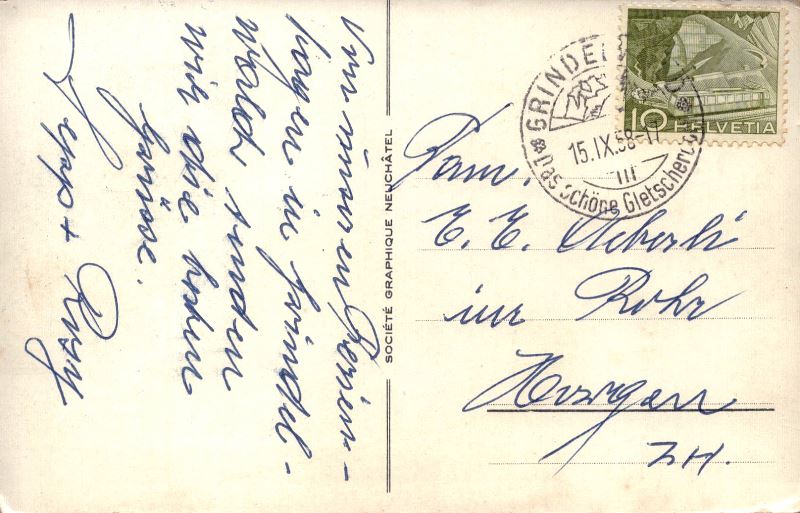 Von unseren Ferien-
tagen in Grindel-
wald senden
wir die besten
Grüsse.
Sepp + Rosy
SOCIÉTÉ GRAPHIQUE NEUCHÂTEL
GRINDELWALD
15.IX.58-11
Das schöne Gletscherdorf
10 HELVETIA
Fam.
E. E. Aeberli
im Rohr
Horgen
ZH.